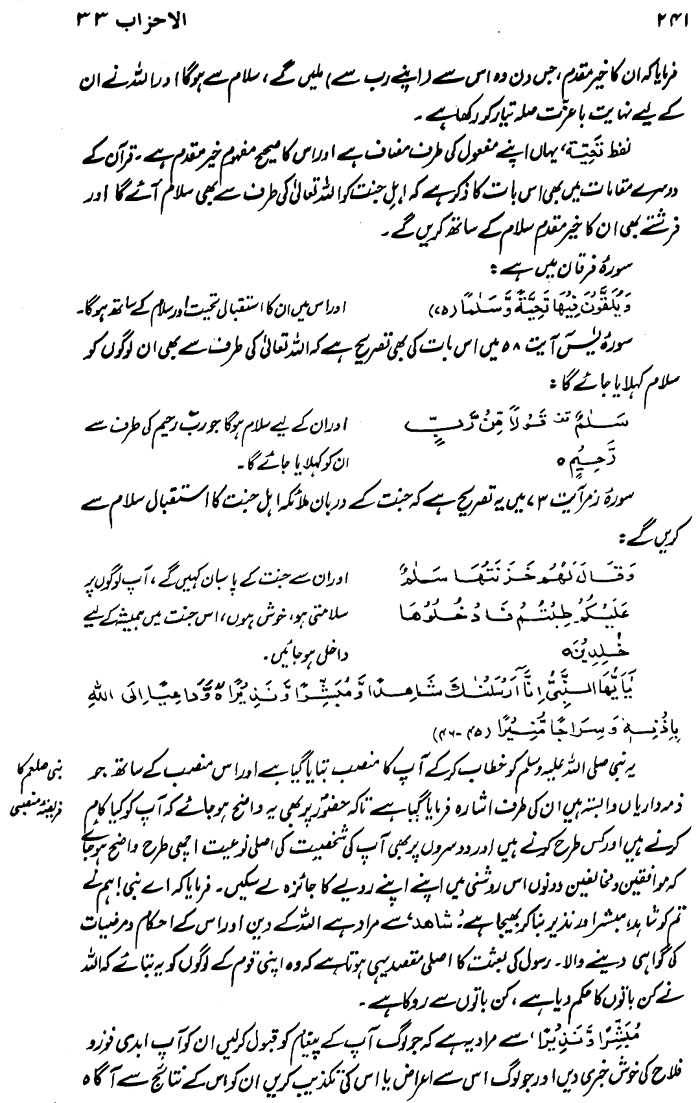 ۲۴۱
الاحزاب ۳۳
فرمایا کہ ان کا خیر مقدم، جس دن وہ اس سے (اپنے رب سے) ملیں گے، سلام سے ہوگا اور اللہ نے ان
کے لیے نہایت باعزت صلہ تیار کر رکھا ہے۔
لفظ تَحِیَّة، یہاں اپنے مفعول کی طرف مضاف ہے اور اس کا صحیح مفہوم خیر مقدم ہے۔ قرآن کے
دوسرے مقامات میں بھی اس بات کا ذکر ہے کہ اہل جنت کو اللہ تعالیٰ کی طرف سے بھی سلام آئے گا اور
فرشتے بھی ان کا خیر مقدم سلام کے ساتھ کریں گے۔
سورۂ فرقان میں ہے:
وَیُلَقَّوْنَ فِیْهَا تَحِیَّةً وَّسَلٰمًا (۷۵) اور اس میں ان کا استقبال تحیت اور سلام کے ساتھ ہوگا۔
سورۂ یٰسٓ آیت ۵۸ میں اس بات کی بھی تصریح ہے کہ اللہ تعالیٰ کی طرف سے بھی ان لوگوں کو
سلام کہلایا جائے گا:
سَلٰمٌ قف قَوْلًا مِّنْ رَّبٍّ اور ان کے لیے سلام ہوگا جو ربّ رحیم کی طرف سے
رَّحِیْمٍ ہ ان کو کہلایا جائے گا۔
سورۂ زمر آیت ۷۳ میں یہ تصریح ہے کہ جنت کے دربان ملائکہ اہل جنت کا استقبال سلام سے
کریں گے:
وَقَالَ لَهُمْ خَزَنَتُهَا سَلٰمٌ اور ان سے جنت کے پاسبان کہیں گے، آپ لوگوں پر
عَلَیْكُمْ طِبْتُمْ فَادْخُلُوْهَا سلامتی ہو، خوش ہوں، اس جنت میں ہمیشہ کے لیے
خٰلِدِیْنَ ہ داخل ہو جائیں۔
یٰٓاَیُّهَا النَّبِیُّ اِنَّآ اَرْسَلْنٰكَ شَاهِدًا وَّمُبَشِّرًا وَّنَذِیْرًا ہ وَّدَاعِیًا اِلَی اللّٰهِ
بِاِذْنِهٖ وَسِرَاجًا مُّنِیْرًا (۴۵-۴۶)
نبی صلعم کا
فریضۂ منصبی
یہ نبی صلی اللہ علیہ وسلم کو خطاب کرکے آپ کا منصب بتایا گیا ہے اور اس منصب کے ساتھ جو
ذمہ داریاں وابستہ ہیں ان کی طرف اشارہ فرمایا گیا ہے تاکہ حضورؐ پر بھی یہ واضح ہو جائے کہ آپ کو کیا کام
کرنے ہیں اور کس طرح کرنے ہیں اور دوسروں پر بھی آپ کی شخصیت کی اصلی نوعیت اچھی طرح واضح ہو جائے
کہ موافقین و مخالفین دونوں اس روشنی میں اپنے اپنے رویے کا جائزہ لے سکیں۔ فرمایا کہ اے نبی! ہم نے
تم کو شاہد، مبشر اور نذیر بنا کر بھیجا ہے۔ شاھد، سے مراد ہے اللہ کے دین اور اس کے احکام و مرضیات
کی گواہی دینے والا۔ رسول کی بعثت کا اصلی مقصد یہی ہوتا ہے کہ وہ اپنی قوم کے لوگوں کو یہ بتائے کہ اللہ
نے کن باتوں کا حکم دیا ہے، کن باتوں سے روکا ہے۔
مُبَشِّرًا وَّنَذِیْرًا، سے مراد یہ ہے کہ جو لوگ آپ کے پیغام کو قبول کرلیں ان کو آپ ابدی فوز و
فلاح کی خوش خبری دیں اور جو لوگ اس سے اعراض یا اس کی تکذیب کریں ان کو اس کے نتائج سے آگاہ